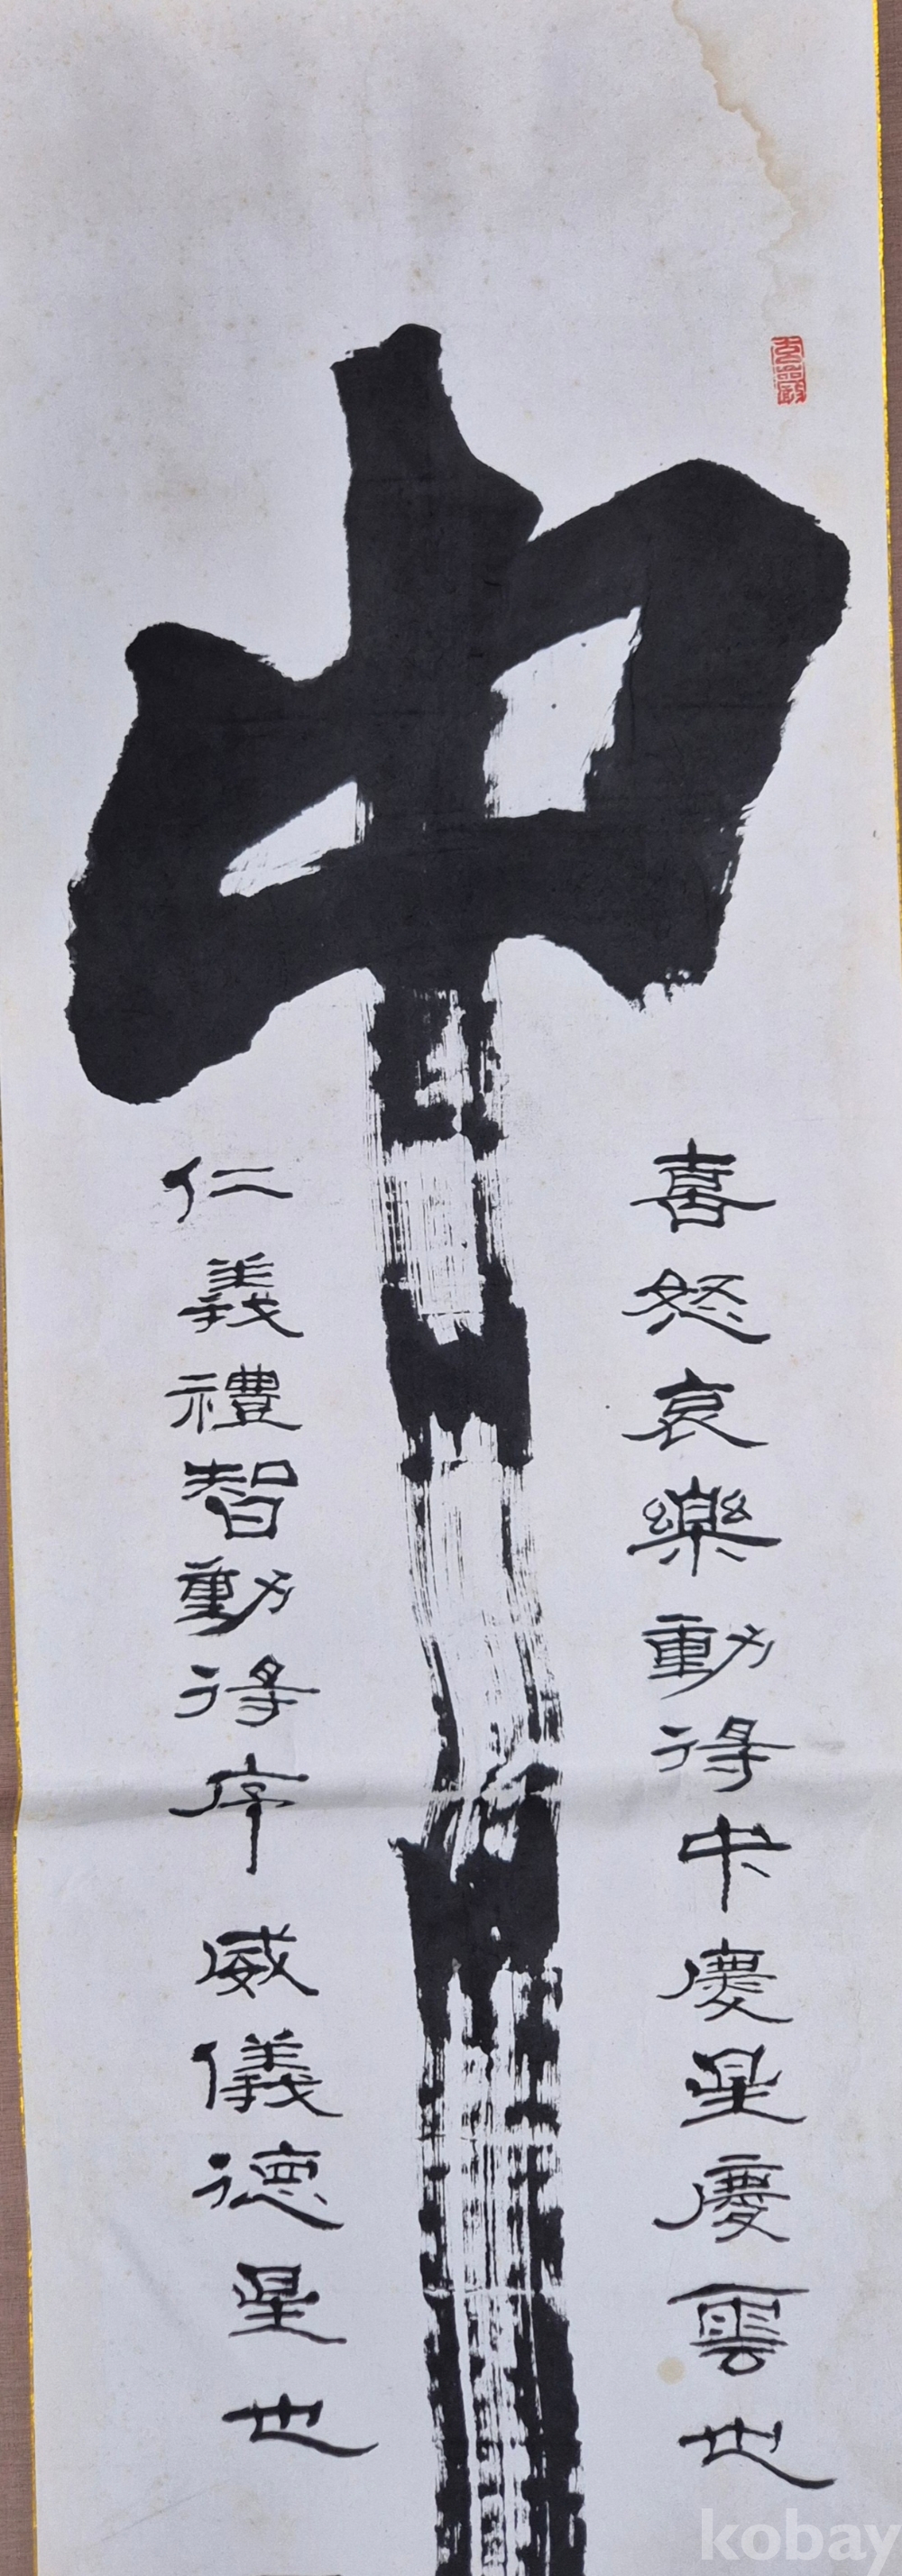 中
喜怒哀樂動得中慶星慶雲也
仁義禮智動得序威儀德星也
kobay